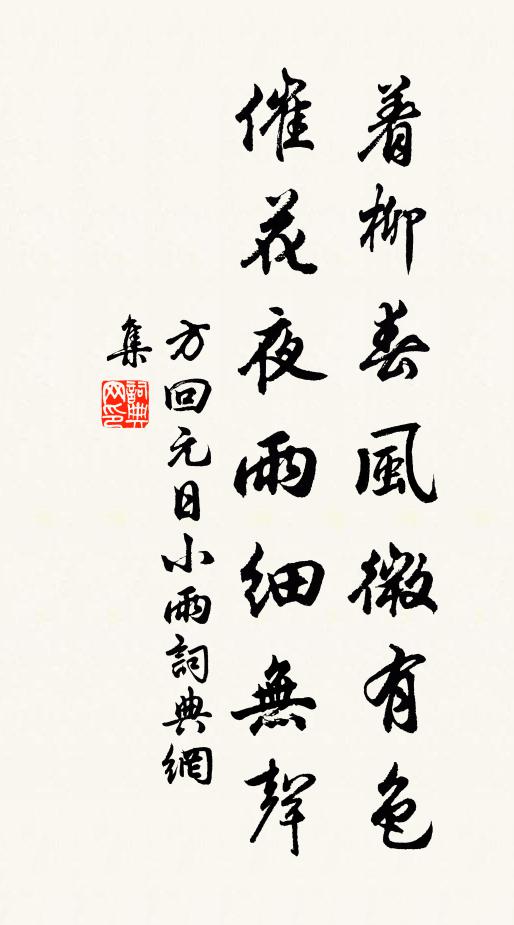 着柳春風微有色
催花夜雨細無聲
方回元日小雨詞典網
集
詞典
网印